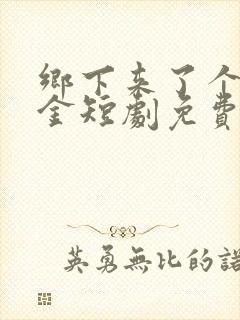 鄉下來了个
金短劇免費
英勇無比的諾